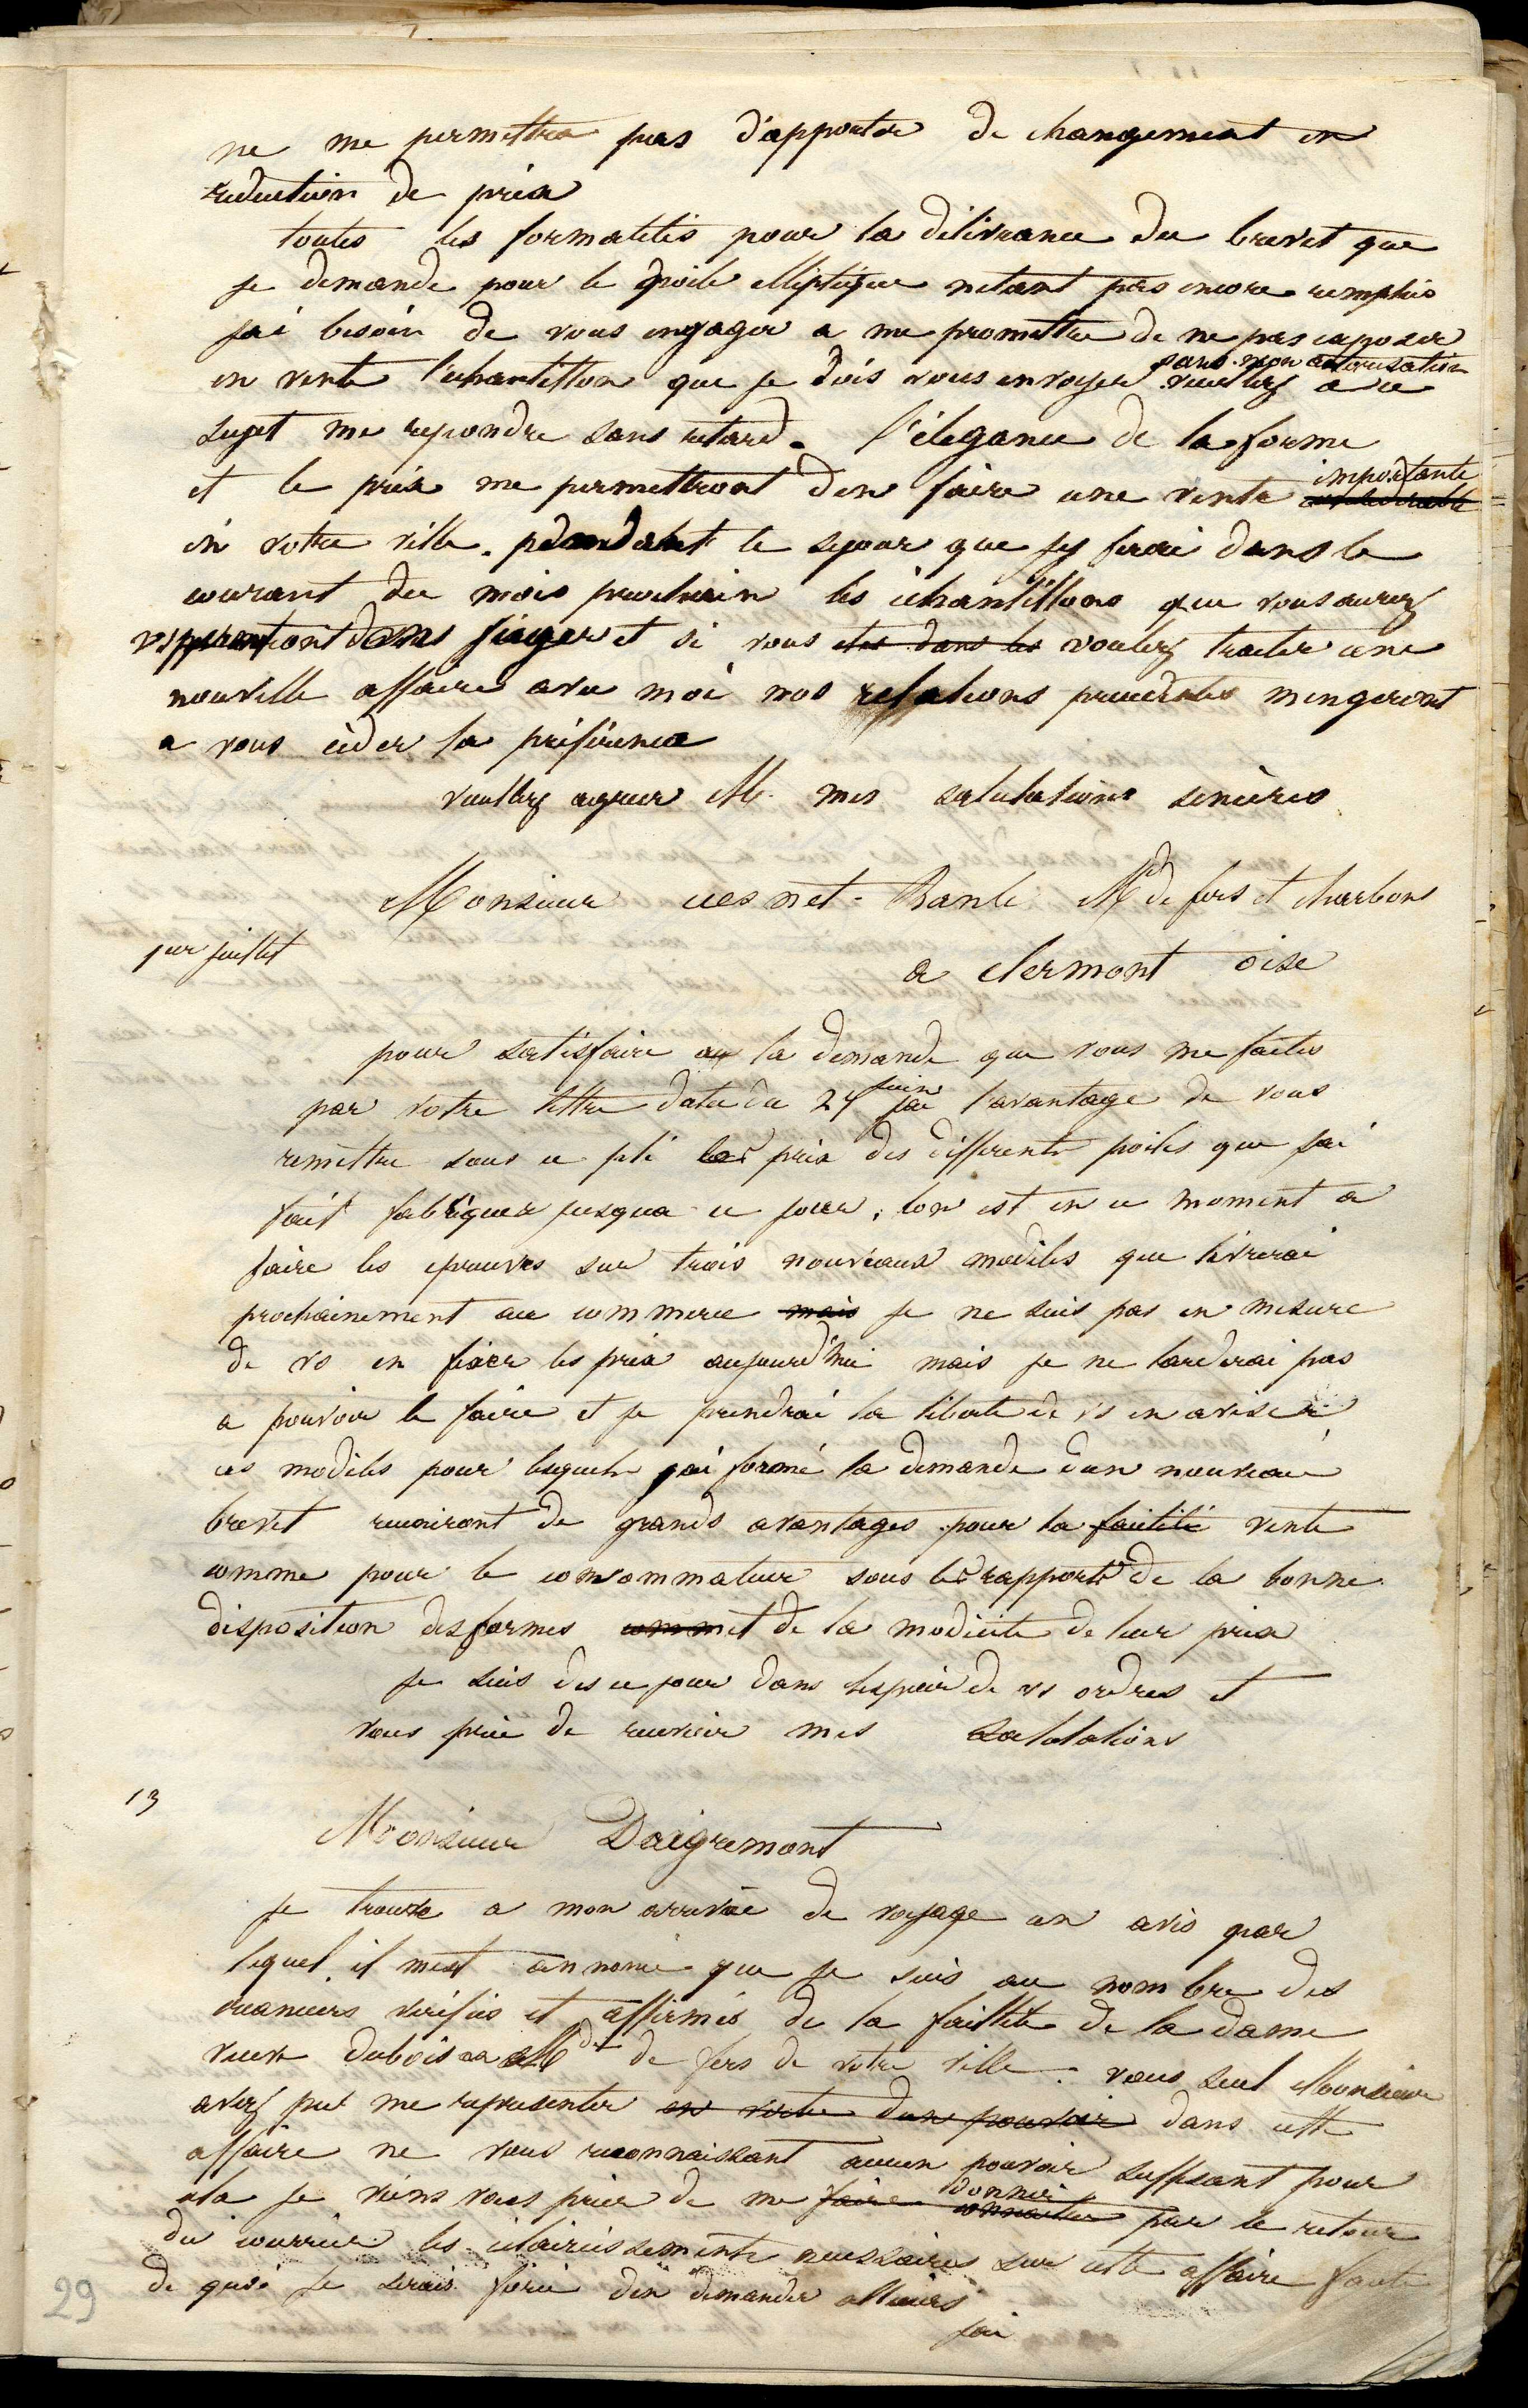 ne me permettra pas d'apporter de changement en
reduction de prix
toutes les formalités pour la délivrance du brevet que
je demande pour le poele elliptique netant pas encore remplies
jai besoin de vous engager a me promettre de ne pas exposer
en vente l'echantillon que je dois vous envoyer sans mon autorisation veuillez a ce
sujet me repondre sans retard. l'élegance de la forme
et le prix me permettront den faire une vente importante
en votre ville. pendant le sejour que jy ferai dans le
courant du mois prochain les échantillons que vous aurez
vs juger et si vous etes dans les voulez traiter une
nouvelle affaire avec moi nos relations precedentes mengeront
a vous céder la préférence
veuillez agreer M. mes salutations sincères
Monsieur cesnet-Banle Md de fers et charbons
1er juillet
a clermont oise
pour satisfaire a la demande que vous me faites
par votre lettre datée du 27 juin jai l'avantage de vous
remettre sous ce pli les prix des differents poiles que jai
fait fabriquer jusqua ce jour, lon est en ce moment a
faire les epreuves sur trois nouveaux modèles que livrerai
prochainement au commerce mais je ne suis pas en mesure
de vs en fixer les prix aujourd'hui mais je ne tarderai pas
a pouvoir le faire et je prendrai la liberté de vs en aviser
ces modèles pour lesquels jai formé la demande dun nouveau
brevet reuniront de grands avantages pour la facilité vente
comme pour le consommateur sous les rapports de la bonne
disposition des formes comm et de la modicité de leur prix
je suis des ce jour dans lespoir de vs ordres et
vous prie de recevoir mes salutations
13
Monsieur Daigremont
je trouve a mon arrivée de voyage un avis par
lequel il mest annoncé que je suis au nombre des
creanciers verifiés et affirmés de la faillite de la dame
veuve dubois Mde de fers de votre ville. vous seul Monsieur
avez put me representer en vertu dun pouvoir dans cette
affaire ne vous reconnaissant aucun pouvoir suffisant pour
cela je viens vous prier de me faire connaitre donner par le retour
du courrier les éclaircissements necessaires sur cette affaire faute
de quoi je serais forcé den demander ailleurs
jai
29